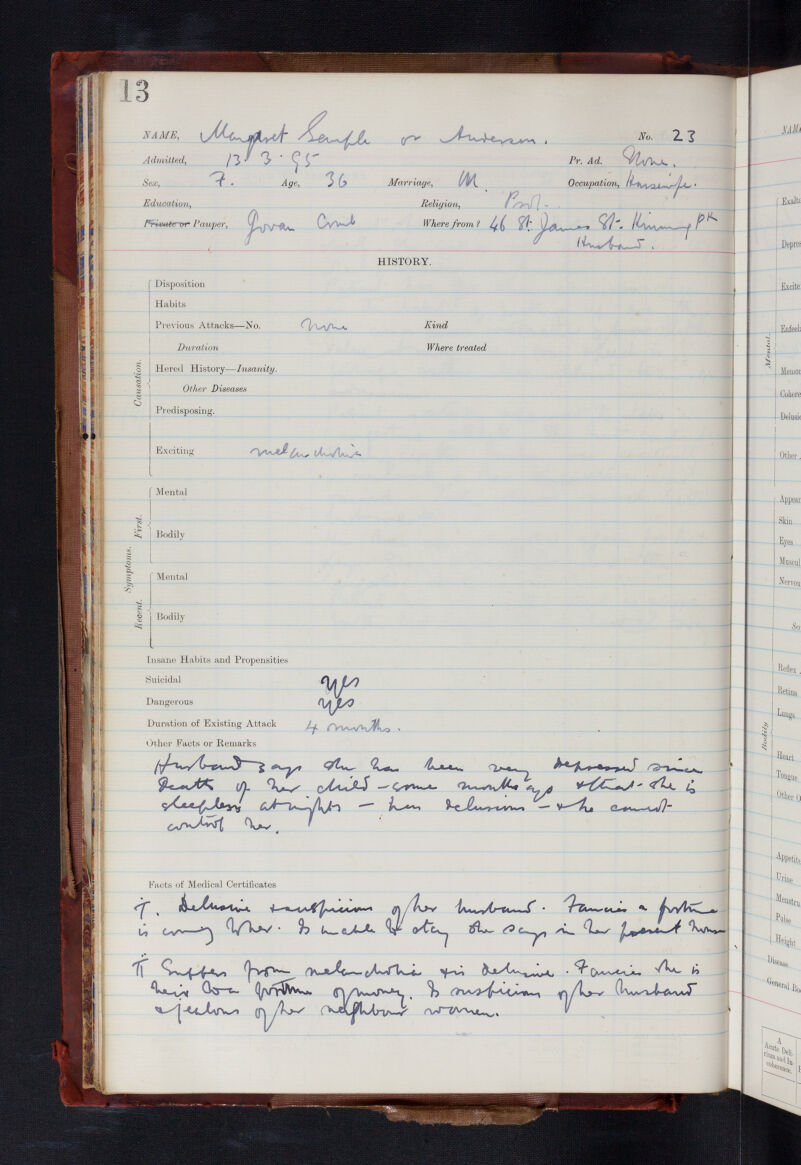 13
NAME, Margaret Semple or Anderson. No. 23
Admitted, 13. 3. 95 Pr. Ad. None.
Sex, F. Age, 36 Marriage, M. Occupation, Housewife.
Education, Religion, Prot.
Private or Pauper, Govan Comb Where from? 46 St. James St. Kinning Pk
Husband.
HISTORY.
Disposition
Habits
Previous Attacks—No. None Kind
Duration Where treated
Causation.
Hered History—Insanity.
Other Diseases
Predisposing.
Exciting melancholia
Symptoms.
First.
Mental
Bodily
Recent.
Mental
Bodily
Insane Habits and Propensities
Suicidal yes
Dangerous yes
Duration of Existing Attack 4 months.
Other Facts or Remarks
Husband says she has been very depressed since
death of her child - some months ago & that she is
sleepless at nights - has delusions - & he cannot
control her.
Facts of Medical Certificates
I. Delusive & suspicious of her husband. Fancies a fortune
is coming to her. Is unable to stay she says in her present house
II Suffers from melancholia & is delusive. Fancies she is
heir to a fortune of money. Is suspicious of her husband
& jealous of her neighbour women.
NAM
Exalta
Depres
Excite
Enfeeb
Mental.
Memor
Cohere
Delusio
Other
Appear
Skin
Eyes
Muscul
Nervou
Reflex
Retina
Lungs
Bodily
Heart
Tongue
Other O
Appetite
Urine
Menstru
Pulse
Height
Disease
General Bo
A
Acute Deli-
rium and In-
coherence.